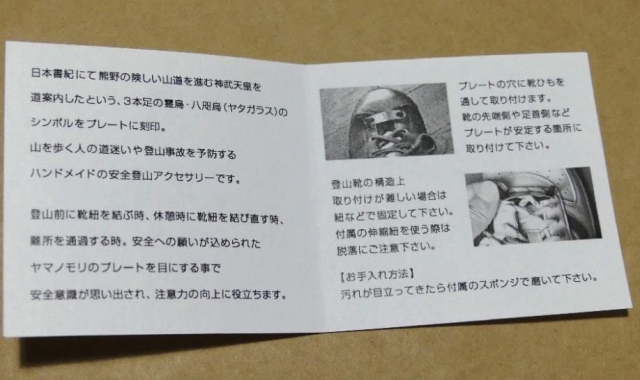 日本書紀にて熊野の険しい山道を進む神武天皇を
道案内したという、3本足の霊烏・八咫烏(ヤタガラス)の
シンボルをプレートに刻印。
山を歩く人の道迷いや登山事故を予防する
ハンドメイドの安全登山アクセサリーです。
登山前に靴紐を結ぶ時、休憩時に靴紐を結び直す時、
難所を通過する時。安全への願いが込められた
ヤマノモリのプレートを目にする事で
安全意識が思い出され、注意力の向上に役立ちます。
プレートの穴に靴ひもを
通して取り付けます。
靴の先端側や足首側など
プレートが安定する箇所に
取り付けて下さい。
登山靴の構造上
取り付けが難しい場合は
紐などで固定して下さい。
付属の伸縮紐を使う際は
脱落にご注意下さい。
【お手入れ方法】
汚れが目立ってきたら付属のスポンジで磨いて下さい。